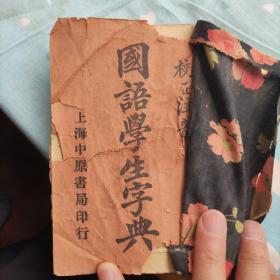 校正注音
國語學生字典
上海中原書局印行